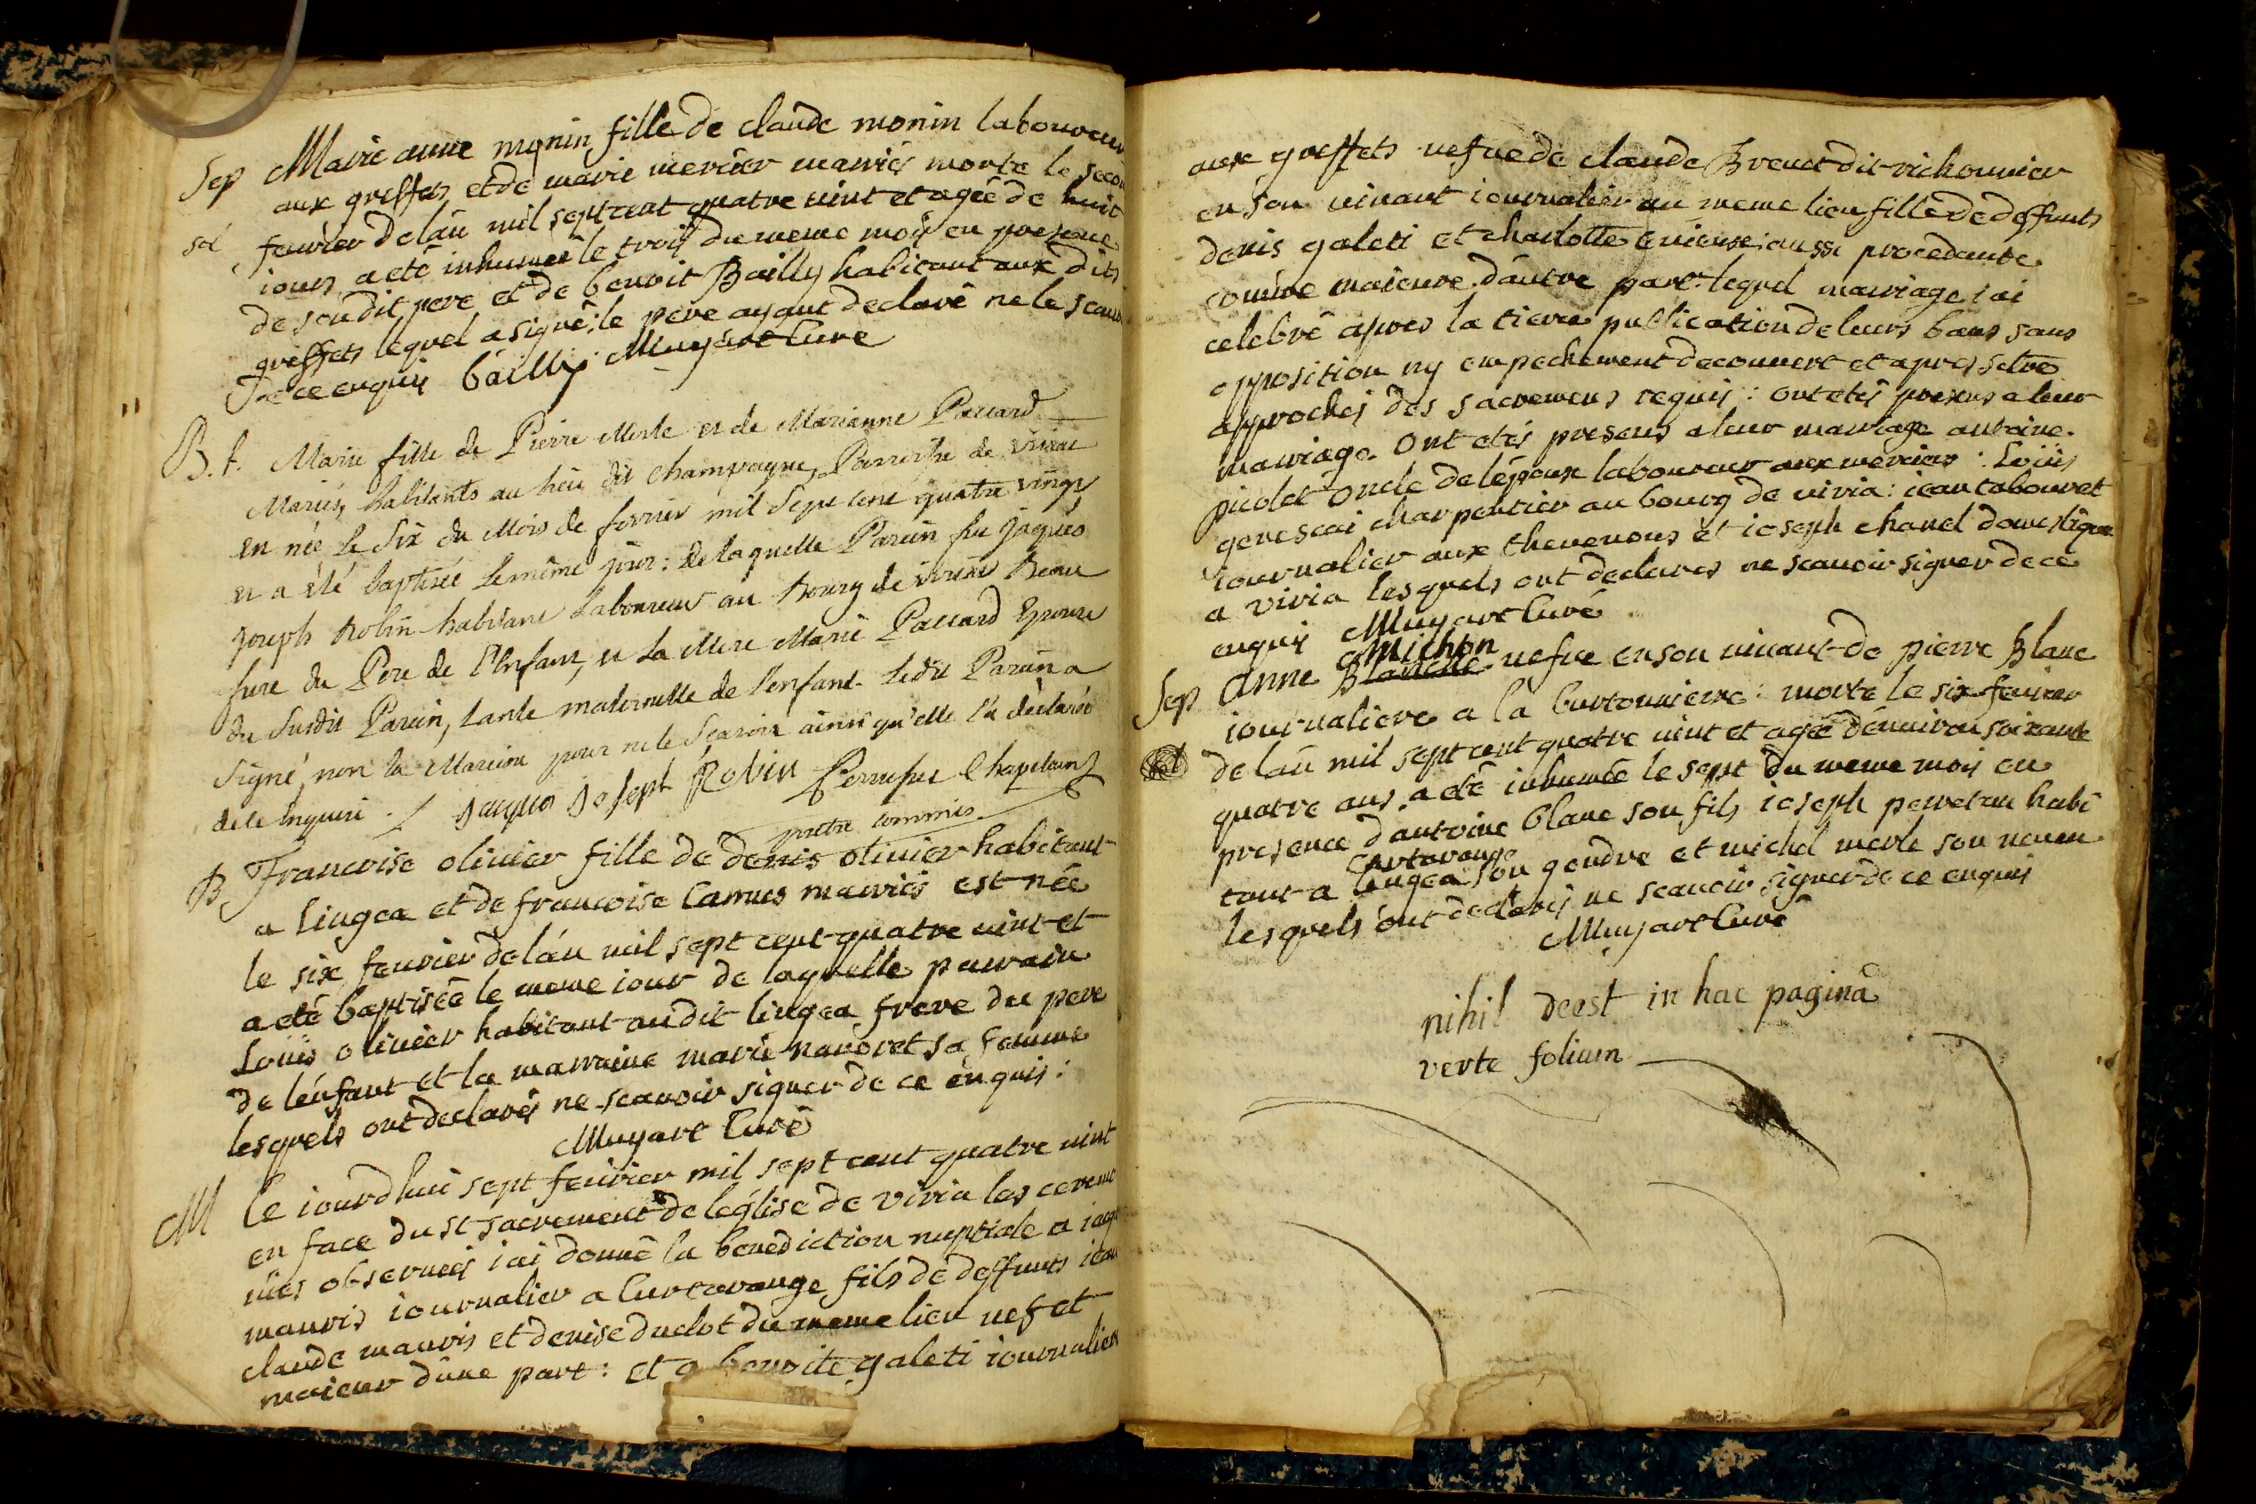 Sep Marie anne monin fille de claude monin laboureur
aux greffets et de marie mercier mariés morte le secon
sol fevrier de lan mil sept cent quatre vint et agée de huit
jours a eté inhumée le trois du meme mois en presence
de son dit pere et de benoit Bailly habitant aux dits
greffets lequel a signé: le pere ayant declaré ne le scavoir
de ce enquis bailly Muyart Curé
B. f. Marie fille de Pierre Merle et de Marianne Paccard
Mariés, habitants au lieu dit Champvagne, Parroisse de viriat
en née le Six du Mois de fevrier mil Sept cent quatre vingt
et a été baptisée le même jour: de laquelle Parein fu jaques
joseph Robin habitant Laboureur au Bourg de viriat Beau
frere du Pere de l'Enfant, et la Mere Marie Paccard Epouse
du Susdit Parein, tante maternelle de l'enfant. Ledit Parein a
Signé, non la Mareine pour ne le Scavoir ainsi qu'elle l'a déclaré
de ce Enquise . / Jaques Joseph Robin Perruset Chapelain
prêtre commis
B Francoise olivier fille de denis olivier habitant
a lingea et de francoise Camus mariés est née
le six fevrier de lán mil sept cent quatre vint et
a eté baptisée le meme iour de laquelle parrain
Loüis olivier habitant audit lingea frere du pere
de lénfant et la marraine marie navoret sa femme
lesquels ont declarés ne scavoir signer de ce enquis:
Muyart Curé
M Le iourdhui sept fevrier mil sept cent quatre vint
en face du st sacrement de léglise de viria les ceremo
nies observées iai donné la benediction nuptiale a iaque
mauris iournalier a Curtarange fils de deffunts iean
claude mauris et denise duclot du meme lieu nef et
maieur dúne part: et a benoite galeti iournaliere
aux greffets vefve de claude Brevet dit richonnier
en son vivant iournalier au meme lieu fille de deffunts
denis galeti et charlotte enieuse aussi procedante
comme maieure dáutre part: lequel mariage iai
celebré apres la tierce publication de leurs bans sans
opposition ny empechement decouvert et apres setre
approchés des sacremens requis: ont etés presens a leur
mariage ont etés presens a leur mariage antoine
picolet oncle de lépoux laboureur aux merciers: Loüis
gerescai charpentier au bourg de viria: iean tabouret
iournalier aux thevenons et ioseph chanel domestique
a viria lesquels ont declarés ne scavoir signer de ce
enquis Muyart Curé
Michon
Sep Anne Blanche vefve en son vivant de pierre Blanc
iournaliere a la burtonniere: morte le six fevrier
de lán mil sept cent quatre vint et agée dénviron soixante
quatre ans a eté inhumée le sept du meme mois en
presence dantoine blanc son fils ioseph perretan habi
Curtarange
tant a lingea son gendre et michel merle son neveu
lesquels ont declarés ne scavoir signer de ce enquis
Muyart Curé
nihil deest in hac paginâ
verte folium